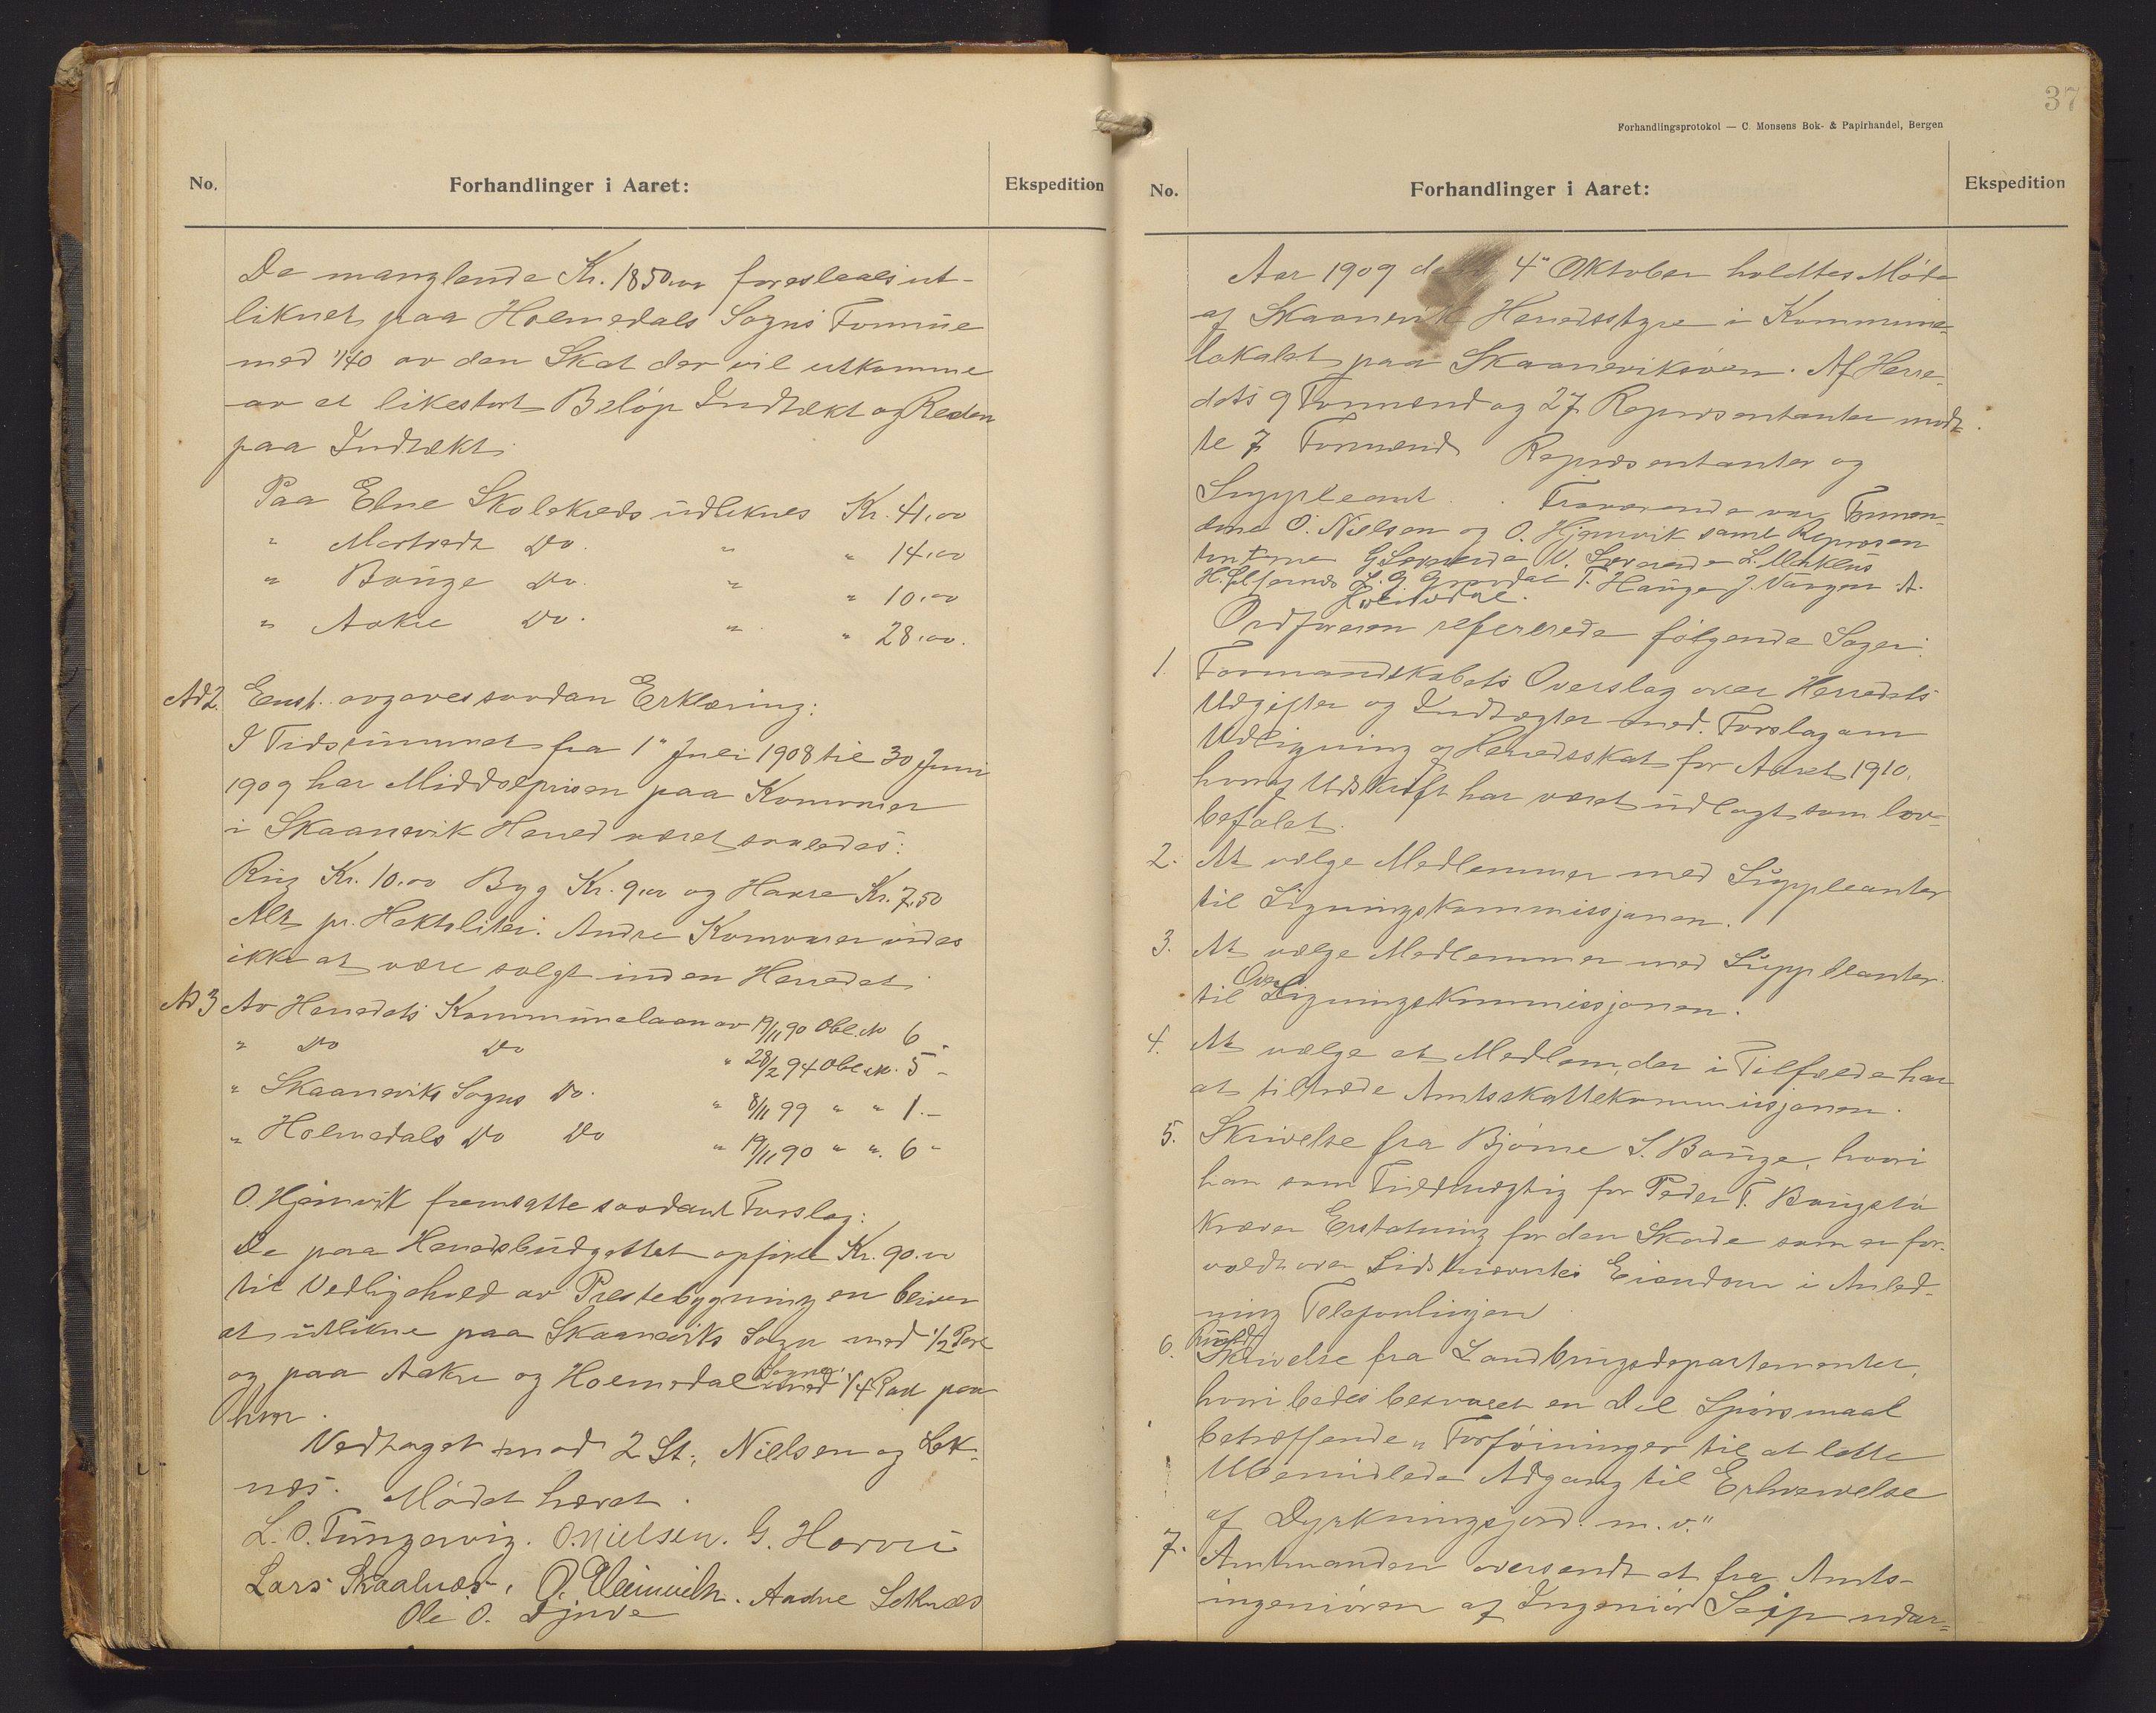 No.
Forhandlinger i Aaret:
Ekspedition
De manglende Kr. 1850,00 foreslaaes ut-
liknet paa Holmedals Sogns Formue
med 1/40 av den Skat der vil utkomme
av et likestort Beløp Indtækt og Resten
paa Indtækt.
Paa Ebne Skolekreds üdliknes Kr. 41,00
" Do. " " 14,00
" Baüge Do. " " 10,00
" Aakre Do. " " 28,00.
Ad 2. Enst. avgaves saadan Erklæring:
I Tidsrümmet fra 1" Juli 1908 til 30 Juni
1909 har Middelprisen paa Kornvarer
i Skaanevik Herred været saaledes:
Rug Kr. 10,00 Byg Kr. 9,00 og Havre Kr. 7,50
Alt pr. Hektoliter. Andre Kornvarer vides
ikke at være solgt inden Herredet.
Ad 3 Av Herredets Kommünelaan av 19/11 90 Obl. No 6 -
" Do Do " 28/2 94 Obl. No. 5 -
" Skaaneviks Sogns Do. " 8/11 99 " " 1.-
" Holmedals Do Do " 19/11 90 " ". 6 -
O. Hjønevik fremsatte saadant Forslag:
De paa Herredsbüdgettet opførte Kr. 90.00
til Vedligehold av Prestebygningen bliver
at ütlikne paa Skaaneviks Sogn med 1/2 Part
og paa Aakre og Holmedal Sogner med 1/4 Part paa
hver.
Vedtaget mod 2 St., Nielsen og Lek-
næs. Mødet hævet.
L. O. Tüngesvig. O. Nielsen. G. Horvei
Lars Skaalnæs, O. . Andne Leknæs
Ole O. Djuve
37
Forhandlingsprotokol — C. Monsens Bok- & Papirhandel, Bergen
No.
Forhandlinger i Aaret:
Ekspedition
Aar 1909 den 4" Oktober holdtes Møde
af Skaanevik Herredsstyre i Kommüne-
lokalet paa Skaaneviksøren. Af Herre-
dets 9 Formænd og 27 Repræsentanter mødt-
te 7 Formænd Repræsentanter og
Süppleant. Fraværende var Formæn-
dene O. Nielsen og O. Hjønevik samt Repræsen
tanterne G. V. L. Milklüs
H. L. G. T. Haüge J. Vangen A.
Holmedal.
Ordføreren refererede følgende Sager:
1. Formandskabets Overslag over Herredets
Udgifter og Indtægter med Forslag om
Udligning af Herredsskat for Aaret 1910,
hvoraf Udskrift har været üdlagt som lov-
befalet.
2. At vælge Medlemmer med Süppleanter
til Ligningskommissjonen.
3. At vælge Medlemmer med Süppleanter
til Over Ligningskommissjonen.
4. At vælge et Medlem, der i Tilfælde har
at tiltræde Amtsskattekommissjonen.
5. Skrivelse fra Bjørne S. Baüge, hvori
han som Füldmægtig for Peder T. Baugstø
kræver Erstatning for den Skade som er for-
voldt over Sidstnævntes Eiendom i Anled-
ning Telefonlinjen.
6. Rundskrivelse fra Landbrügsdepartementet,
hvori bedes besvaret en Del Spørsmaal
betræffende „Forføininger til at lette
Ubemidlede Adgang til Erhvervelse
af Dyrkningsjord. m. v."
7. Amtmanden oversendt et fra Amts-
ingeniøren af Ingeniør Seip udar-